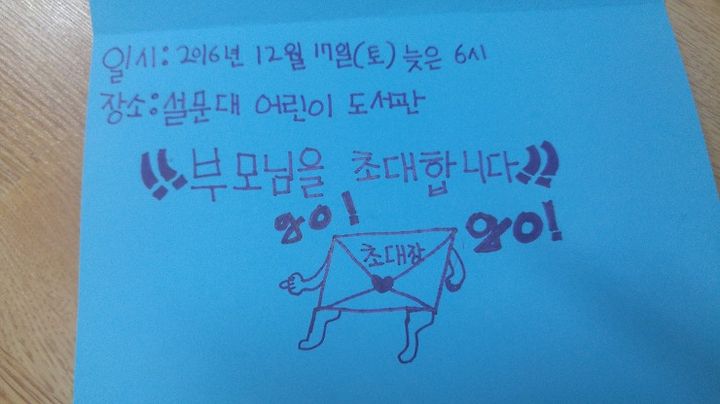 일시: 2016년 12월 17일(토) 늦은 6시
장소: 설문대 어린이 도서관
!!부모님을 초대합니다!!
go! go!
초대장